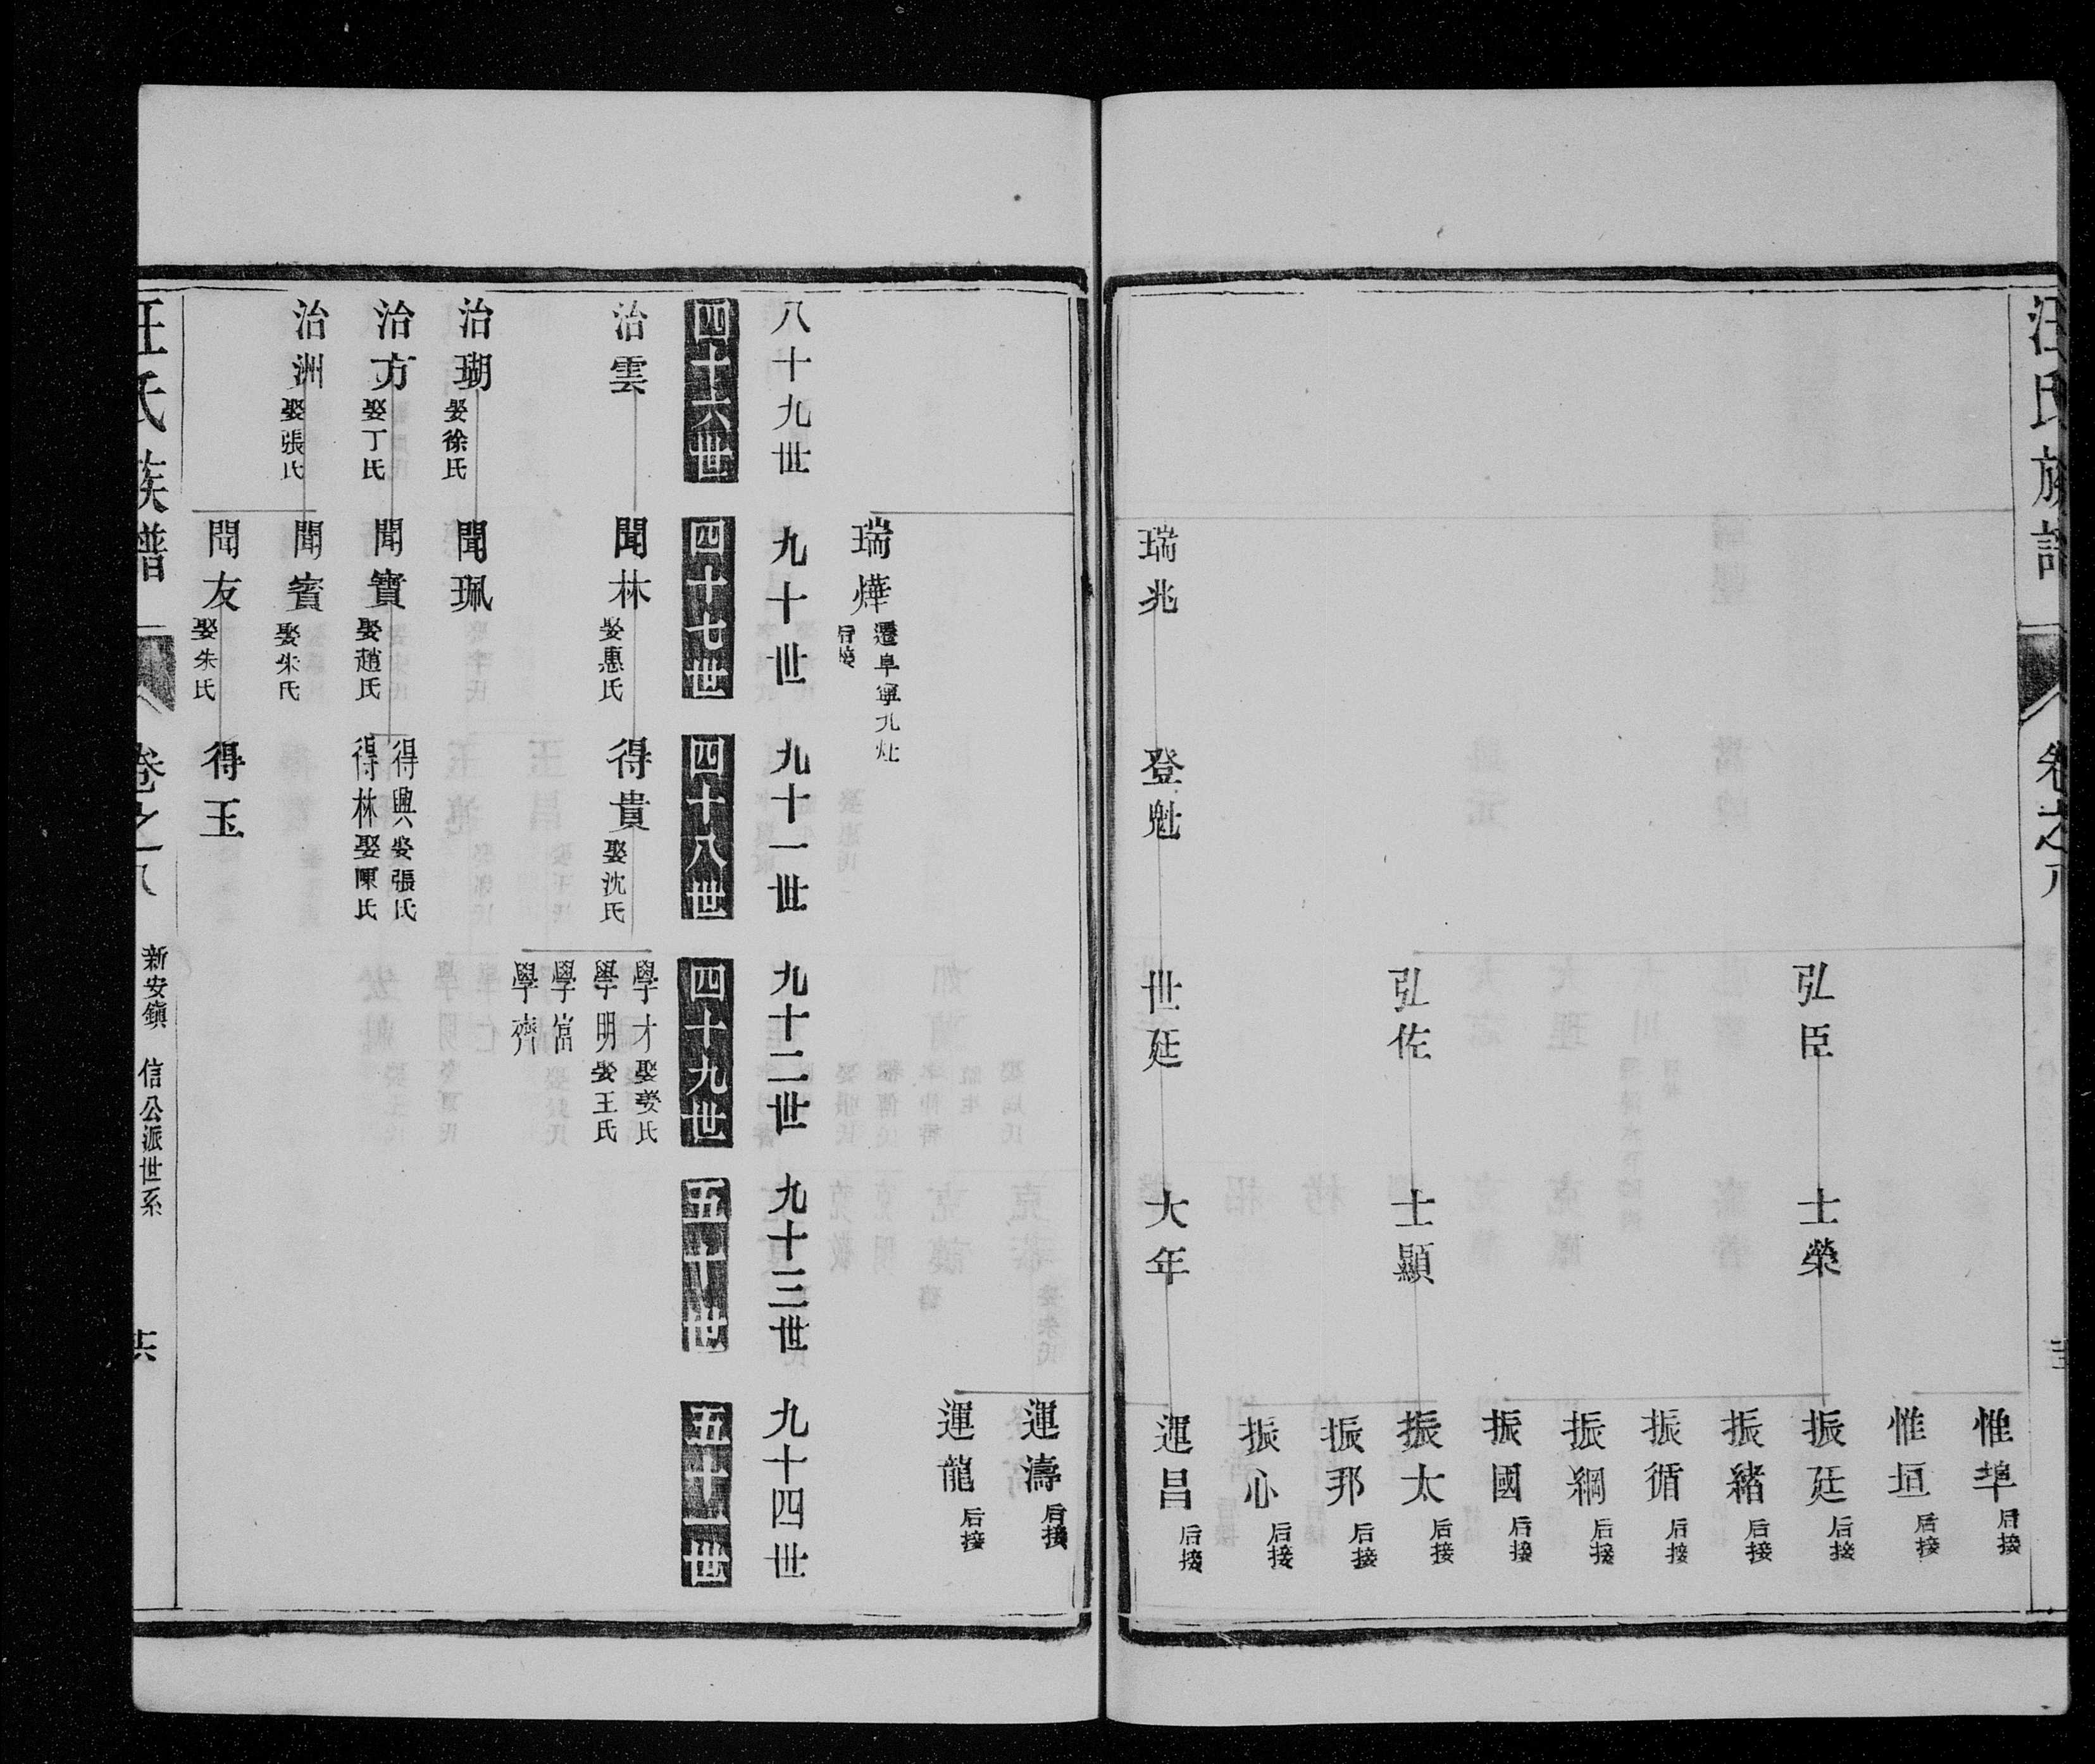 汪氏族譜
卷之八
弘臣
士榮
惟埠 后接
惟垣 后接
振廷 后接
振緒 后接
振循 后接
振綱 后接
振國 后接
弘佐
士顯
振太 后接
振邦 后接
振心 后接
瑞兆
登魁
世廷
大年
運昌 后接
運濤 后接
運龍 后接
瑞燁 遷阜寧九灶
后接
八十九世
九十世
九十一世
九十二世
九十三世
九十四世
四十六世
四十七世
四十八世
四十九世
五十世
五十一世
治雲
聞林 娶惠氏
得貴 娶沈氏
學才 娶姜氏
學明 娶王氏
學富
學齊
治瑚 娶徐氏
聞珮
治方 娶丁氏
聞寶 娶趙氏
得興 娶張氏
得林 娶陳氏
治洲 娶張氏
聞賓 娶朱氏
聞友 娶朱氏
得玉
汪氏族譜
卷之八
新安鎮 信公派世系
十六